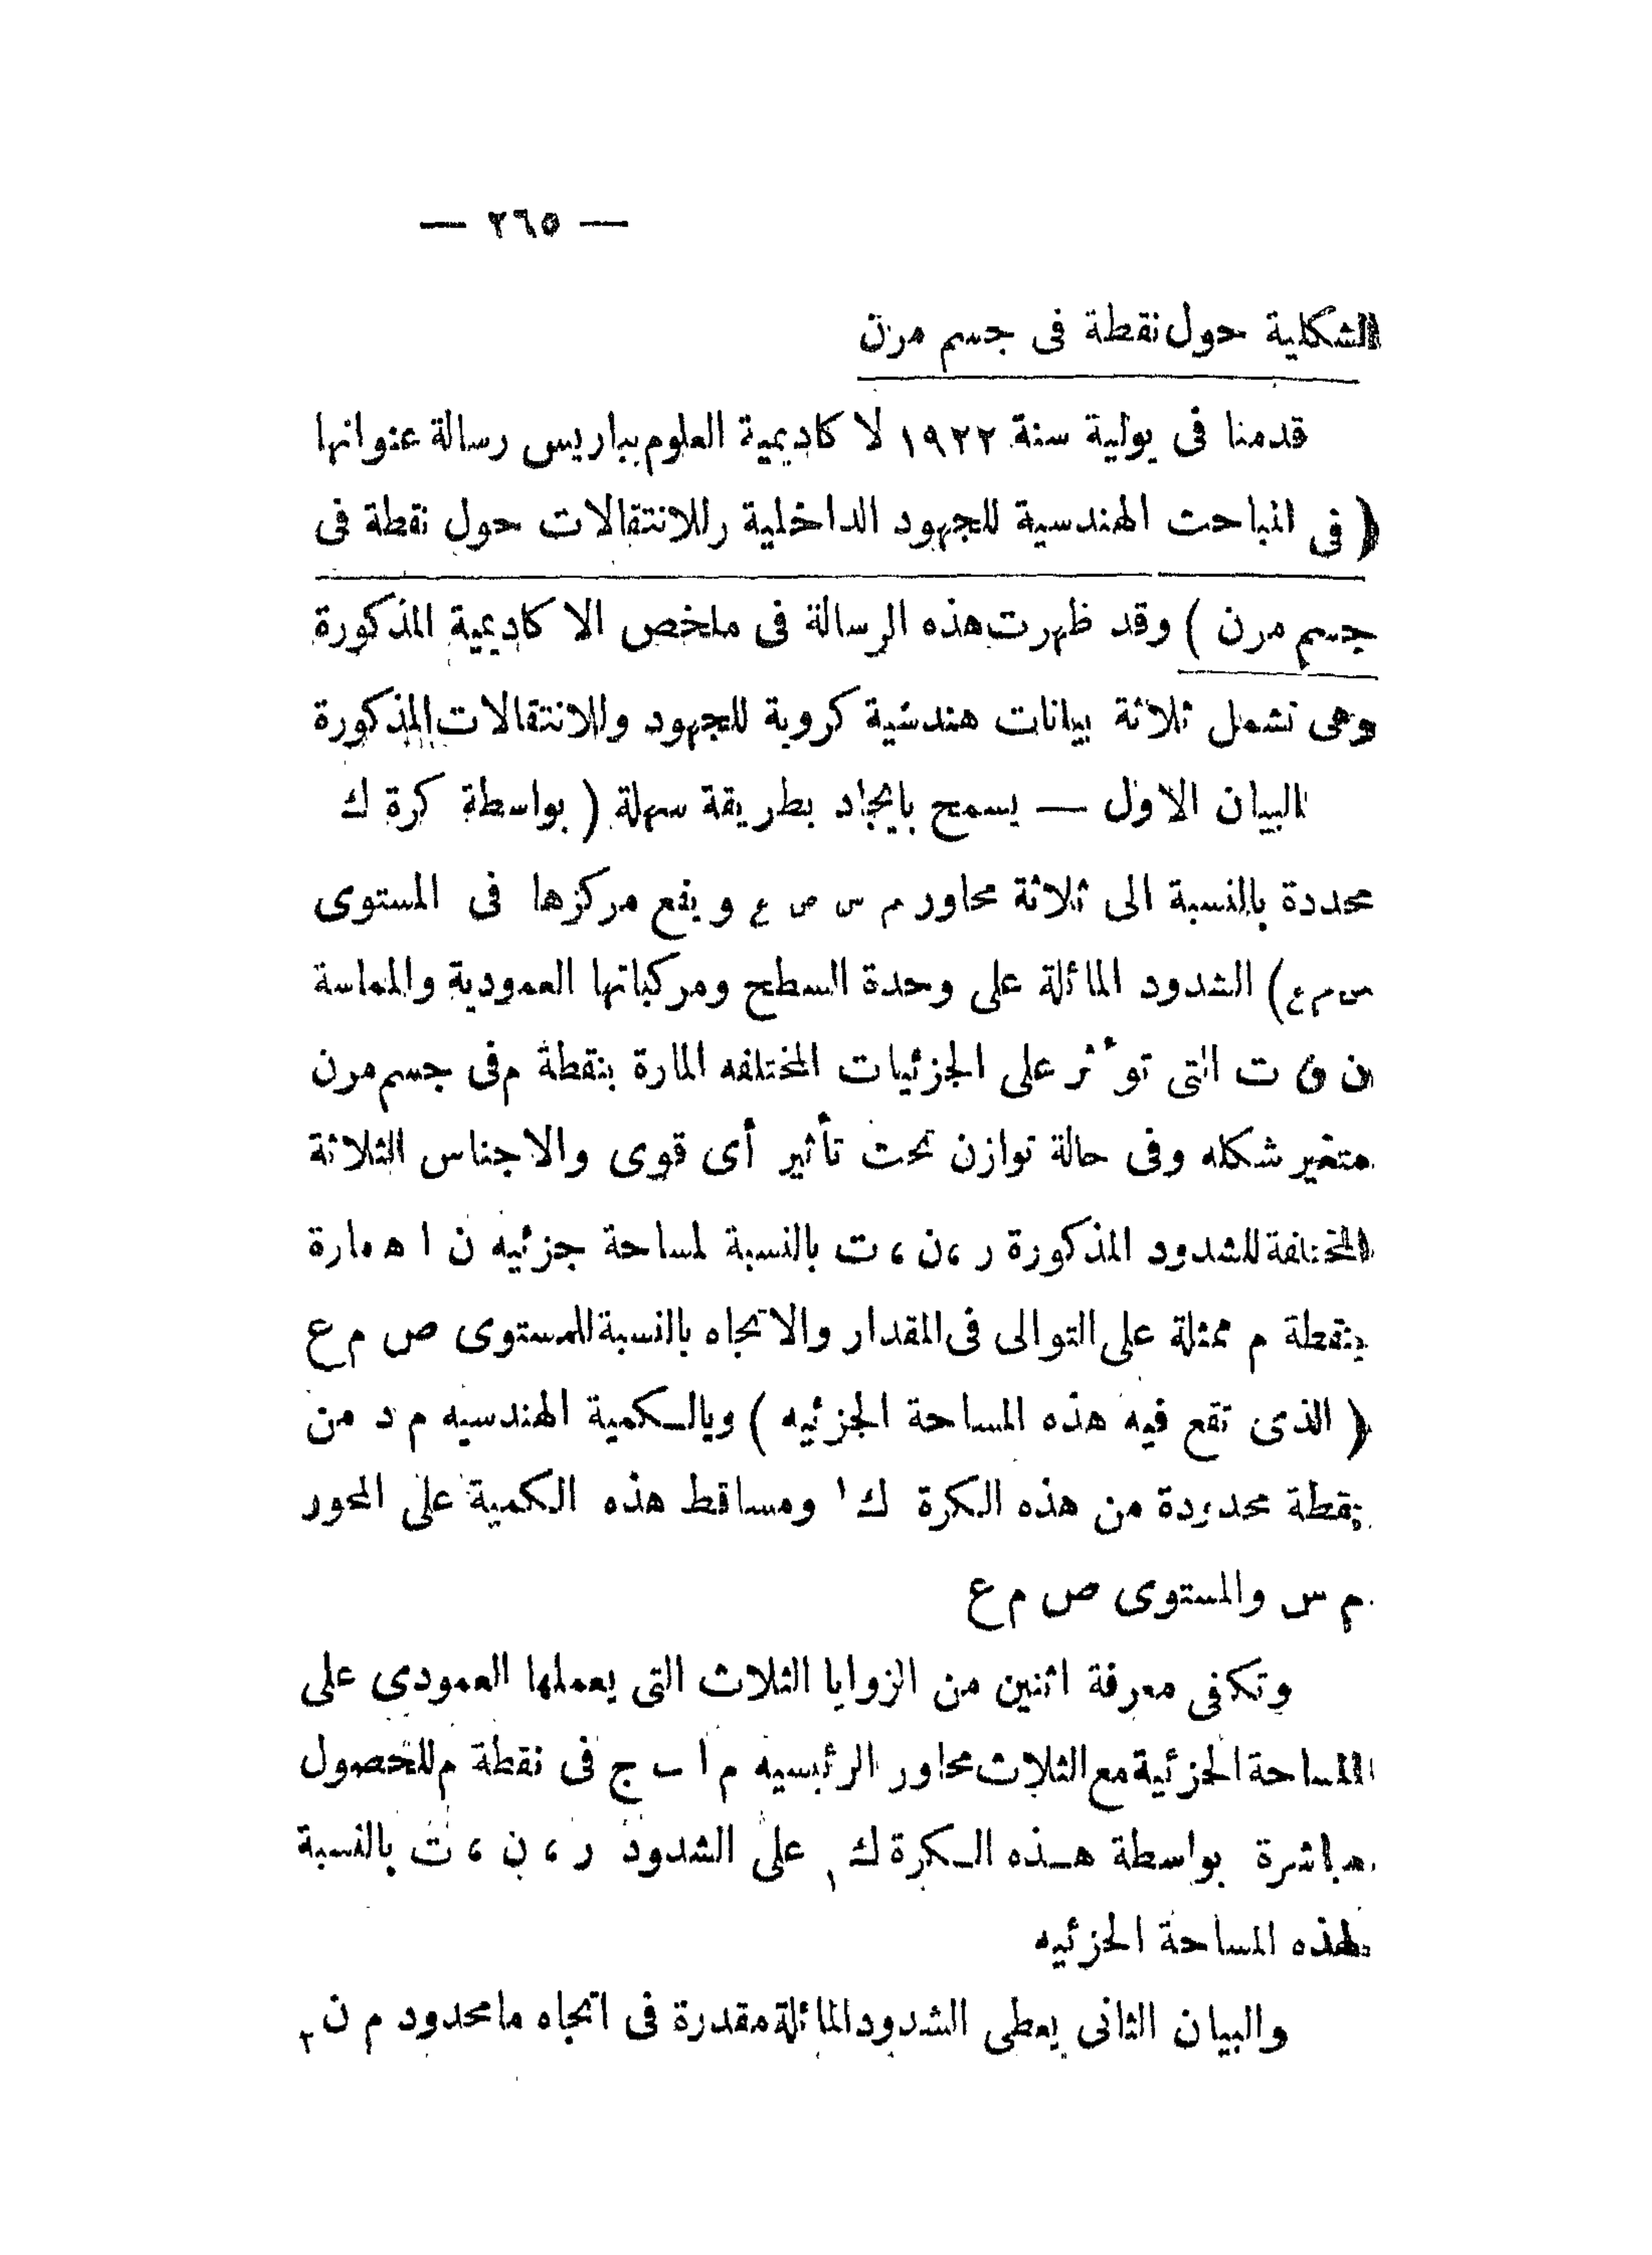 — ٢٦٥ —
الشكلية حول نقطة فى جسم مرن
قدمنا فى يولية سنة ١٩٢٢ لا كاديمية العلوم بباريس رسالة عنوانها
( فى المباحث الهندسية للجهود الداخلية وللانتقالات حول نقطة فى
جسم مرن ) وقد ظهرت هذه الرسالة فى ملخص الا كاديمية المذكورة
وهى تشمل ثلاثة بيانات هندسية كروية للجهود وللانتقالات المذكورة
البيان الاول — يسمح بايجاد بطريقة سهلة ( بواسطة كرة ك
محددة بالنسبة الى ثلاثة محاور م س ص ع ويقع مركزها فى المستوى
س م ع ) الشدود المائلة على وحدة السطح ومركباتها العمودية والمماسة
ن ت التى تؤثر على الجزئيات المختلفه المارة بنقطة م فى جسم مرن
متغير شكله وفى حالة توازن تحت تأثير أى قوى والاجناس الثلاثة
المختلفة للشدود المذكورة ر ، ن ، ت بالنسبة لمساحة جزئيه ن ا ه مارة
بنقطة م ممثلة على التوالى فى المقدار والاتجاه بالنسبة للمستوى ص م ع
( الذى تقع فيه هذه المساحة الجزئيه ) وبالكمية الهندسيه م د من
نقطة محدودة من هذه الكرة ك ١ ومساقط هذه الكمية على المحور
م س والمستوى ص م ع
وتكفى معرفة اثنين من الزوايا الثلاث التى يعملها العمودى على
المساحة الجزئية مع الثلاث محاور الرئيسيه م ا ب ج فى نقطة م للحصول
مباشرة بواسطة هذه الكرة ك ١ على الشدود ر ، ن ، ت بالنسبة
لهذه المساحة الجزئيه
والبيان الثانى يعطى الشدود المائلة مقدرة فى اتجاه ما محدود م ن ٢